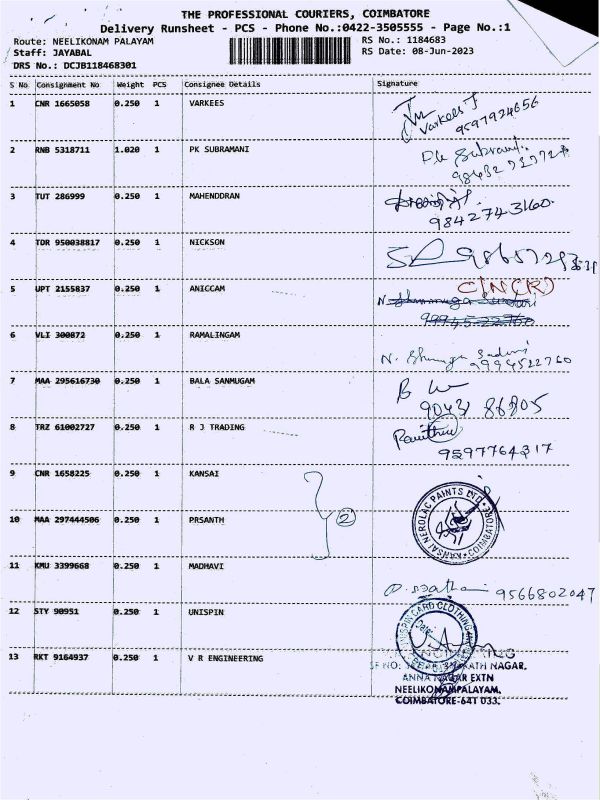 THE PROFESSIONAL COURIERS, COIMBATORE
Delivery Runsheet - PCS - Phone No.:0422-3505555 - Page No.:1
Route: NEELIKONAM PALAYAM RS No.: 1184683
Staff: JAYABAL RS Date: 08-Jun-2023
DRS No.: DCJB118468301
S No Consignment No Weight PCS Consignee Details Signature
1 CNR 1665058 0.250 1 VARKEES Varkees J
9597924656
2 RNB 5318711 1.020 1 PK SUBRAMANI
3 TUT 286999 0.250 1 MAHENDDRAN
9842743160.
4 TDR 950038817 0.250 1 NICKSON
5 UPT 2155837 0.250 1 ANICCAM C/N(R)
6 VLI 300872 0.250 1 RAMALINGAM
9994522760
7 MAA 295616730 0.250 1 BALA SANMUGAM
90431 86805
8 TRZ 61002727 0.250 1 R J TRADING
9597764317
9 CNR 1658225 0.250 1 KANSAI KANSAI NEROLAC PAINTS LTD. COIMBATORE
10 MAA 297444506 0.250 1 PRSANTH
2
11 KMU 3399668 0.250 1 MADHAVI 9566802047
12 STY 90951 0.250 1 UNISPIN UNISPIN CARD CLOTHING
Date:
13 RKT 9164937 0.250 1 V R ENGINEERING
NAGAR,
ANNA NAGAR EXTN
NEELIKONAMPALAYAM,
COIMBATORE-641 033.